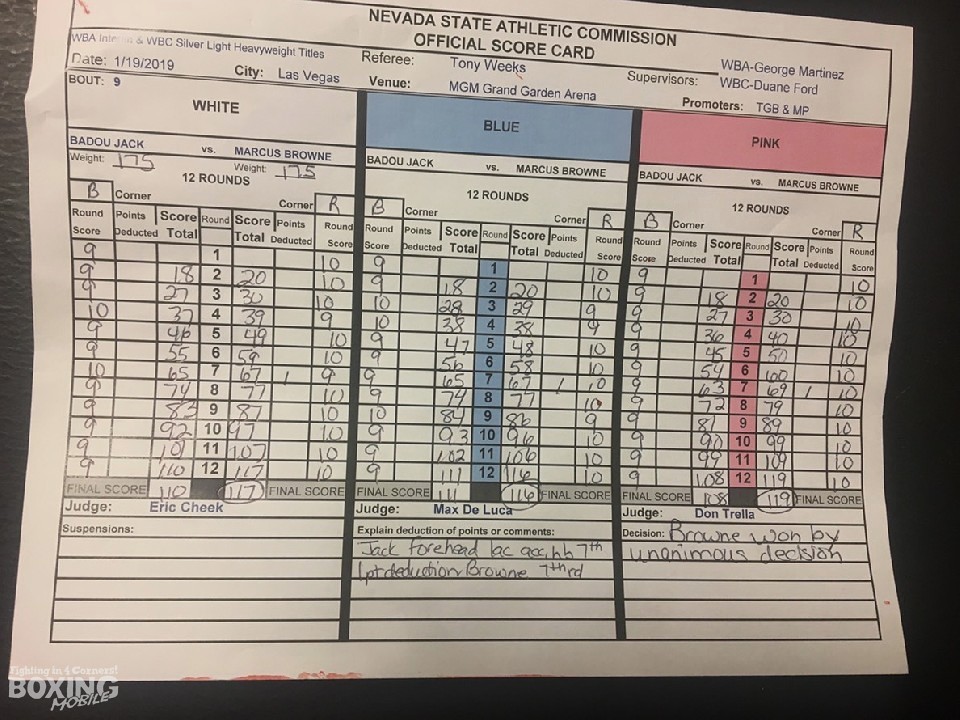 NEVADA STATE ATHLETIC COMMISSION
OFFICIAL SCORE CARD
& WBC Silver Light Heavyweight Titles
Date: 1/19/2019 City: Las Vegas Referee: Tony Weeks Supervisors: WBA-George Martinez
WBC-Duane Ford
BOUT: 9 Venue: MGM Grand Garden Arena Promoters: TGB & MP
WHITE BLUE PINK
BADOU JACK vs. MARCUS BROWNE BADOU JACK vs. MARCUS BROWNE BADOU JACK vs. MARCUS BROWNE
Weight: 175 Weight: 175
12 ROUNDS 12 ROUNDS 12 ROUNDS
B Corner Corner R B Corner Corner R B Corner Corner R
Round Score Points Deducted Score Total Round Score Total Points Deducted Round Score Round Score Points Deducted Score Total Round Score Total Points Deducted Round Score Round Score Points Deducted Score Total Round Score Total Points Deducted Round Score
9 1 10 9 1 10 9 1 10
9 18 2 20 10 9 18 2 20 10 9 18 2 20 10
9 27 3 30 10 10 28 3 29 9 9 27 3 30 10
10 37 4 39 9 10 38 4 38 9 9 36 4 40 10
9 46 5 49 10 9 47 5 48 10 9 45 5 50 10
9 55 6 59 10 9 56 6 58 10 9 54 6 60 10
10 65 7 67 1 9 9 65 7 67 1 10 9 63 7 69 1 10
9 74 8 77 10 9 74 8 77 10 9 72 8 79 10
9 83 9 87 10 10 84 9 86 9 9 81 9 89 10
9 92 10 97 10 9 93 10 96 10 9 90 10 99 10
9 101 11 107 10 9 102 11 106 10 9 99 11 109 10
9 110 12 117 10 9 111 12 116 10 9 108 12 119 10
FINAL SCORE 110 117 FINAL SCORE FINAL SCORE 111 116 FINAL SCORE FINAL SCORE 108 119 FINAL SCORE
Judge: Eric Cheek Judge: Max De Luca Judge: Don Trella
Suspensions: Explain deduction of points or comments: Decision: Browne won by
Jack forehead lac acc. hb 7th unanimous decision
1pt deduction Browne 7th rd
Fighting in 4 Corners!
BOXING
MOBILE